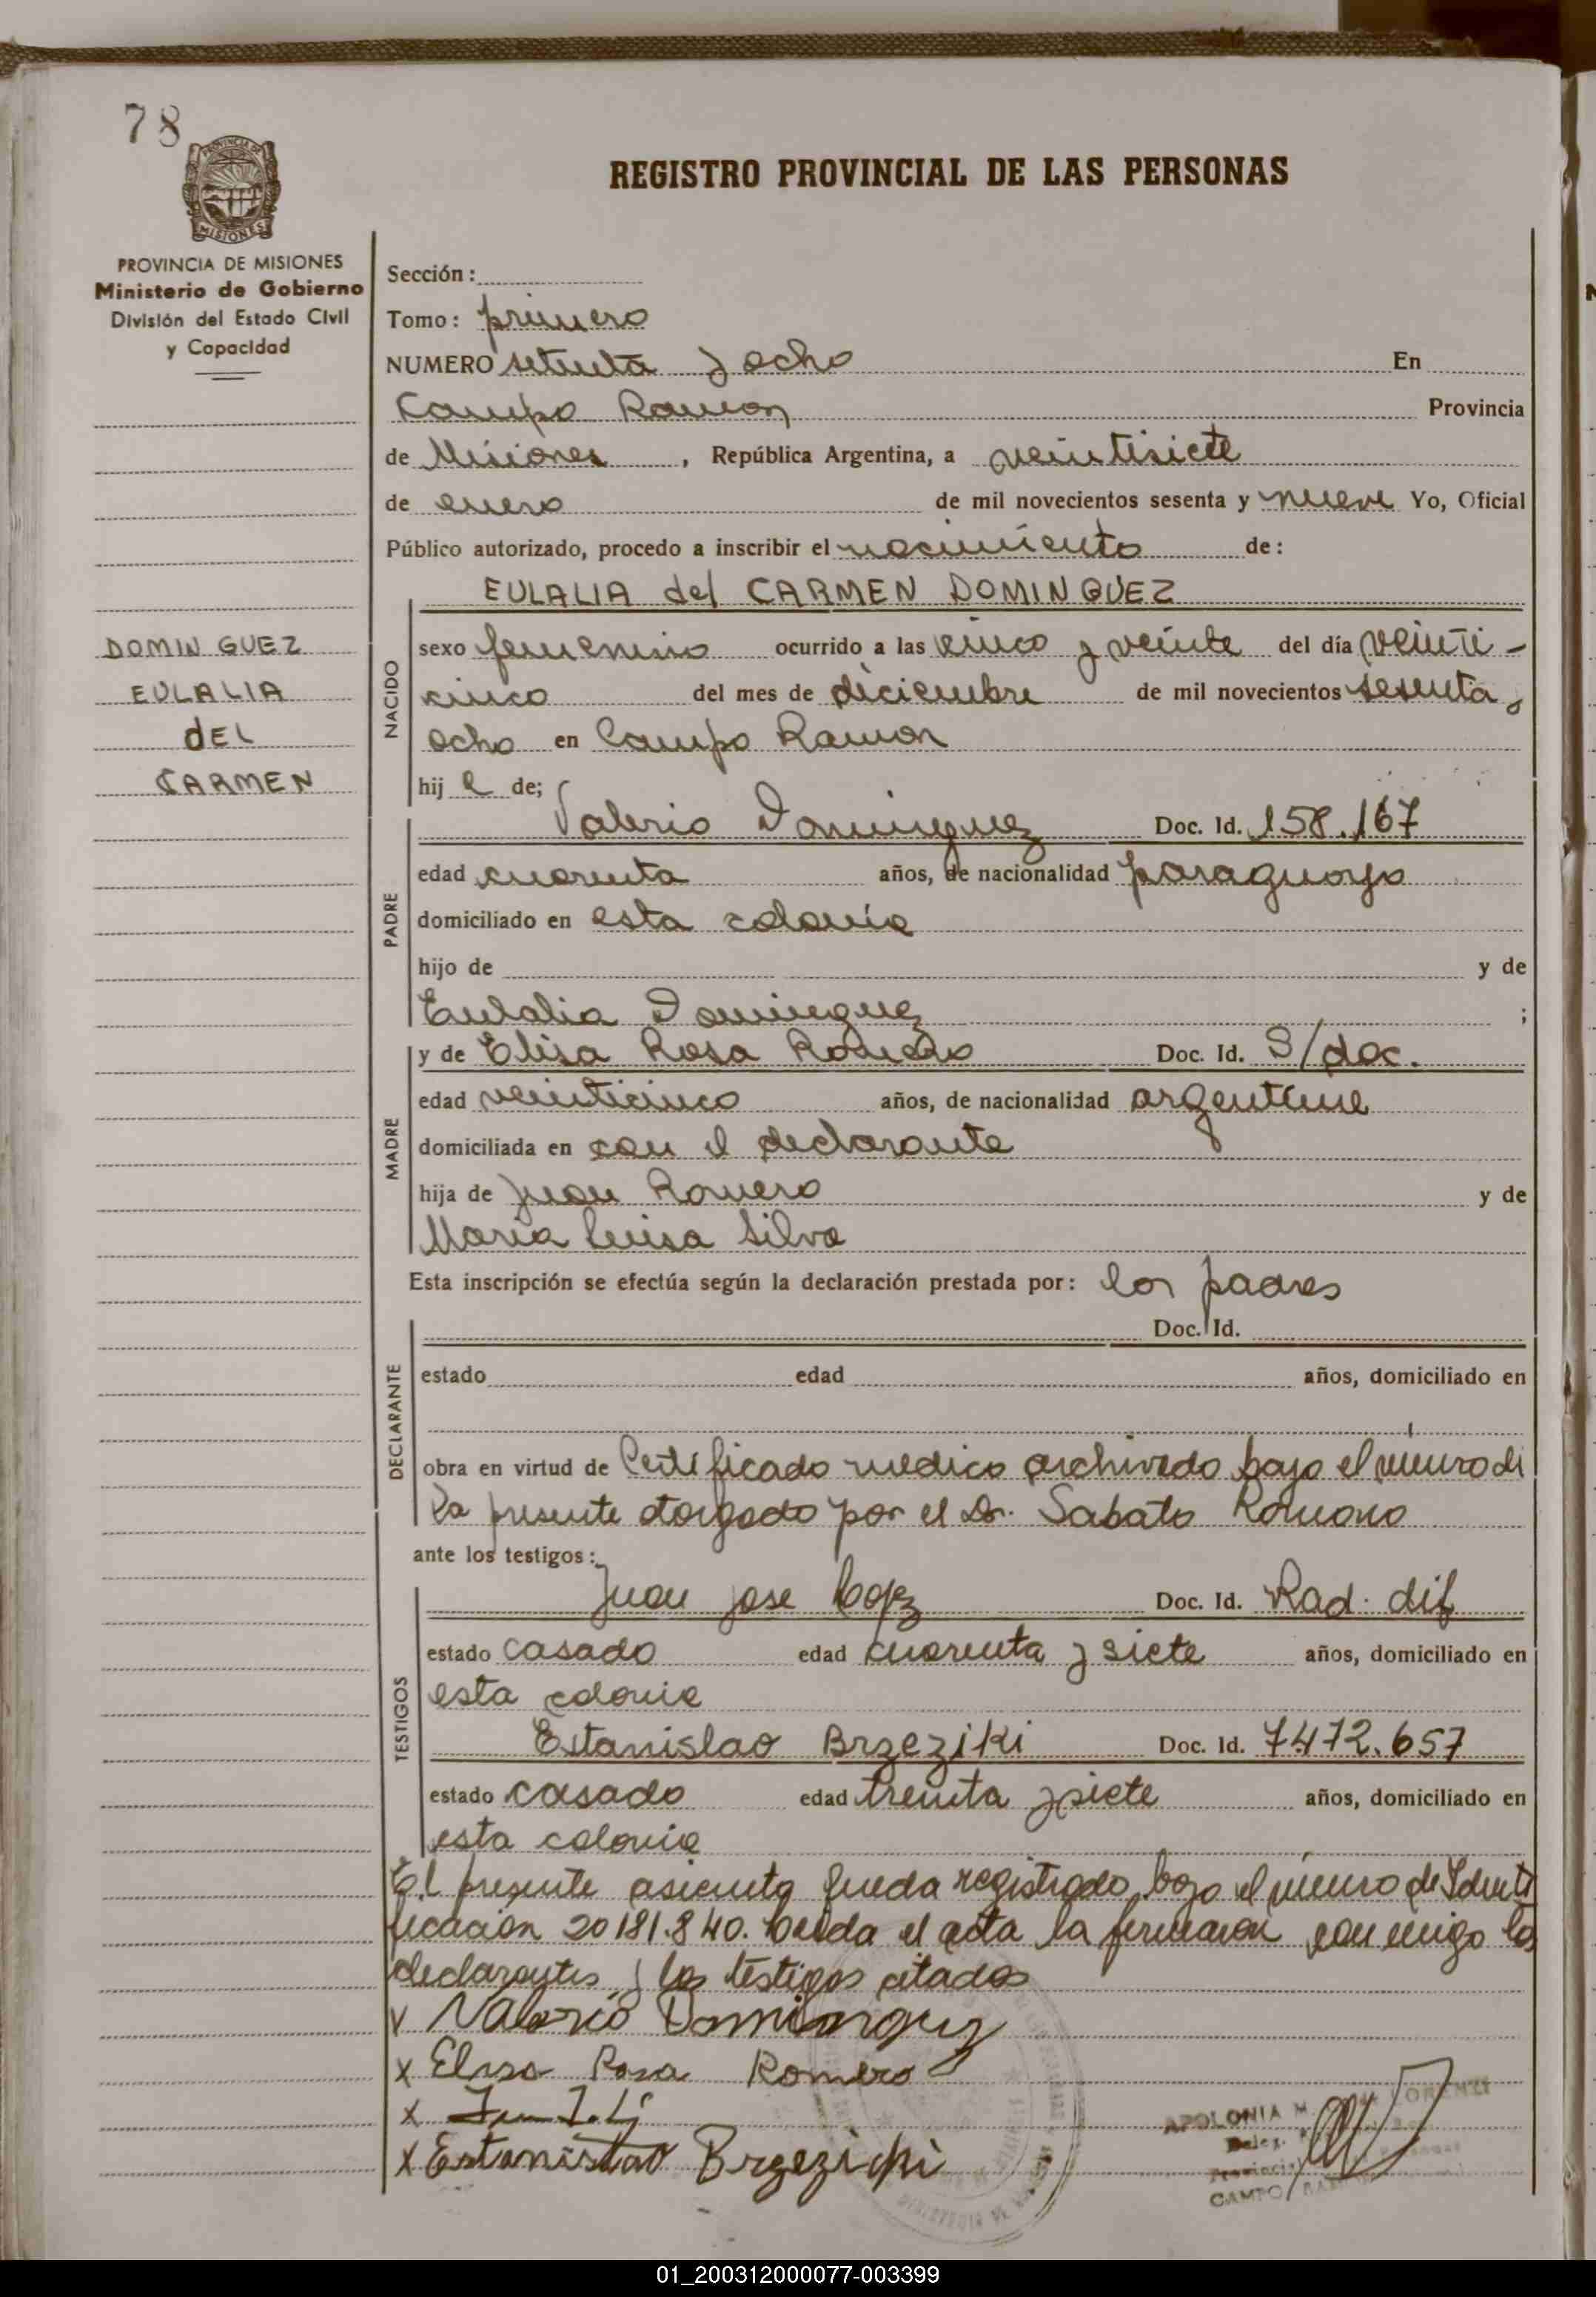 78
PROVINCIA DE
MISIONES
REGISTRO PROVINCIAL DE LAS PERSONAS
PROVINCIA DE MISIONES
Ministerio de Gobierno
División del Estado Civil
y Capacidad
DOMINGUEZ
EULALIA
dEL
CARMEN
Sección:
Tomo: primero
NUMERO setenta y ocho En
Campo Ramon Provincia
de Misiones, República Argentina, a veintisiete
de enero de mil novecientos sesenta y nueve Yo, Oficial
Público autorizado, procedo a inscribir el nacimiento de:
EULALIA del CARMEN DOMINGUEZ
NACIDO
sexo femenino ocurrido a las cinco y veinte del día veinti-
cinco del mes de diciembre de mil novecientos sesenta y
ocho en Campo Ramon
hij a de;
PADRE
Valerio Dominguez Doc. Id. 158.167
edad cuarenta años, de nacionalidad paraguayo
domiciliado en esta colonia
hijo de y de
Eulalia Dominguez ;
MADRE
y de Elisa Rosa Romero Doc. Id. S/doc.
edad veinticinco años, de nacionalidad argentina
domiciliada en con el declarante
hija de Juan Romero y de
Maria Luisa Silva
Esta inscripción se efectúa según la declaración prestada por: los padres
DECLARANTE
Doc. Id.
estado edad años, domiciliado en
obra en virtud de Certificado medico archivado bajo el número de
la presente otorgado por el Dr. Sabato Romano
ante los testigos:
TESTIGOS
Juan Jose Lopez Doc. Id. Rad. dif
estado casado edad cuarenta y siete años, domiciliado en
esta colonia
Estanislao Brzeziki Doc. Id. 7472.657
estado casado edad treinta y siete años, domiciliado en
esta colonia
El presente asiento queda registrado bajo el número de Identi
ficación 20181.840. Leida el acta la firmaron conmigo los
declarantes y los testigos citados
v Valerio Dominguez
x Elisa Rosa Romero
x
x Estanislao Brzezicki
APOLONIA M.
CAMPO
01_200312000077-003399